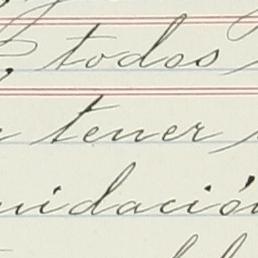 todos
tener
uidació